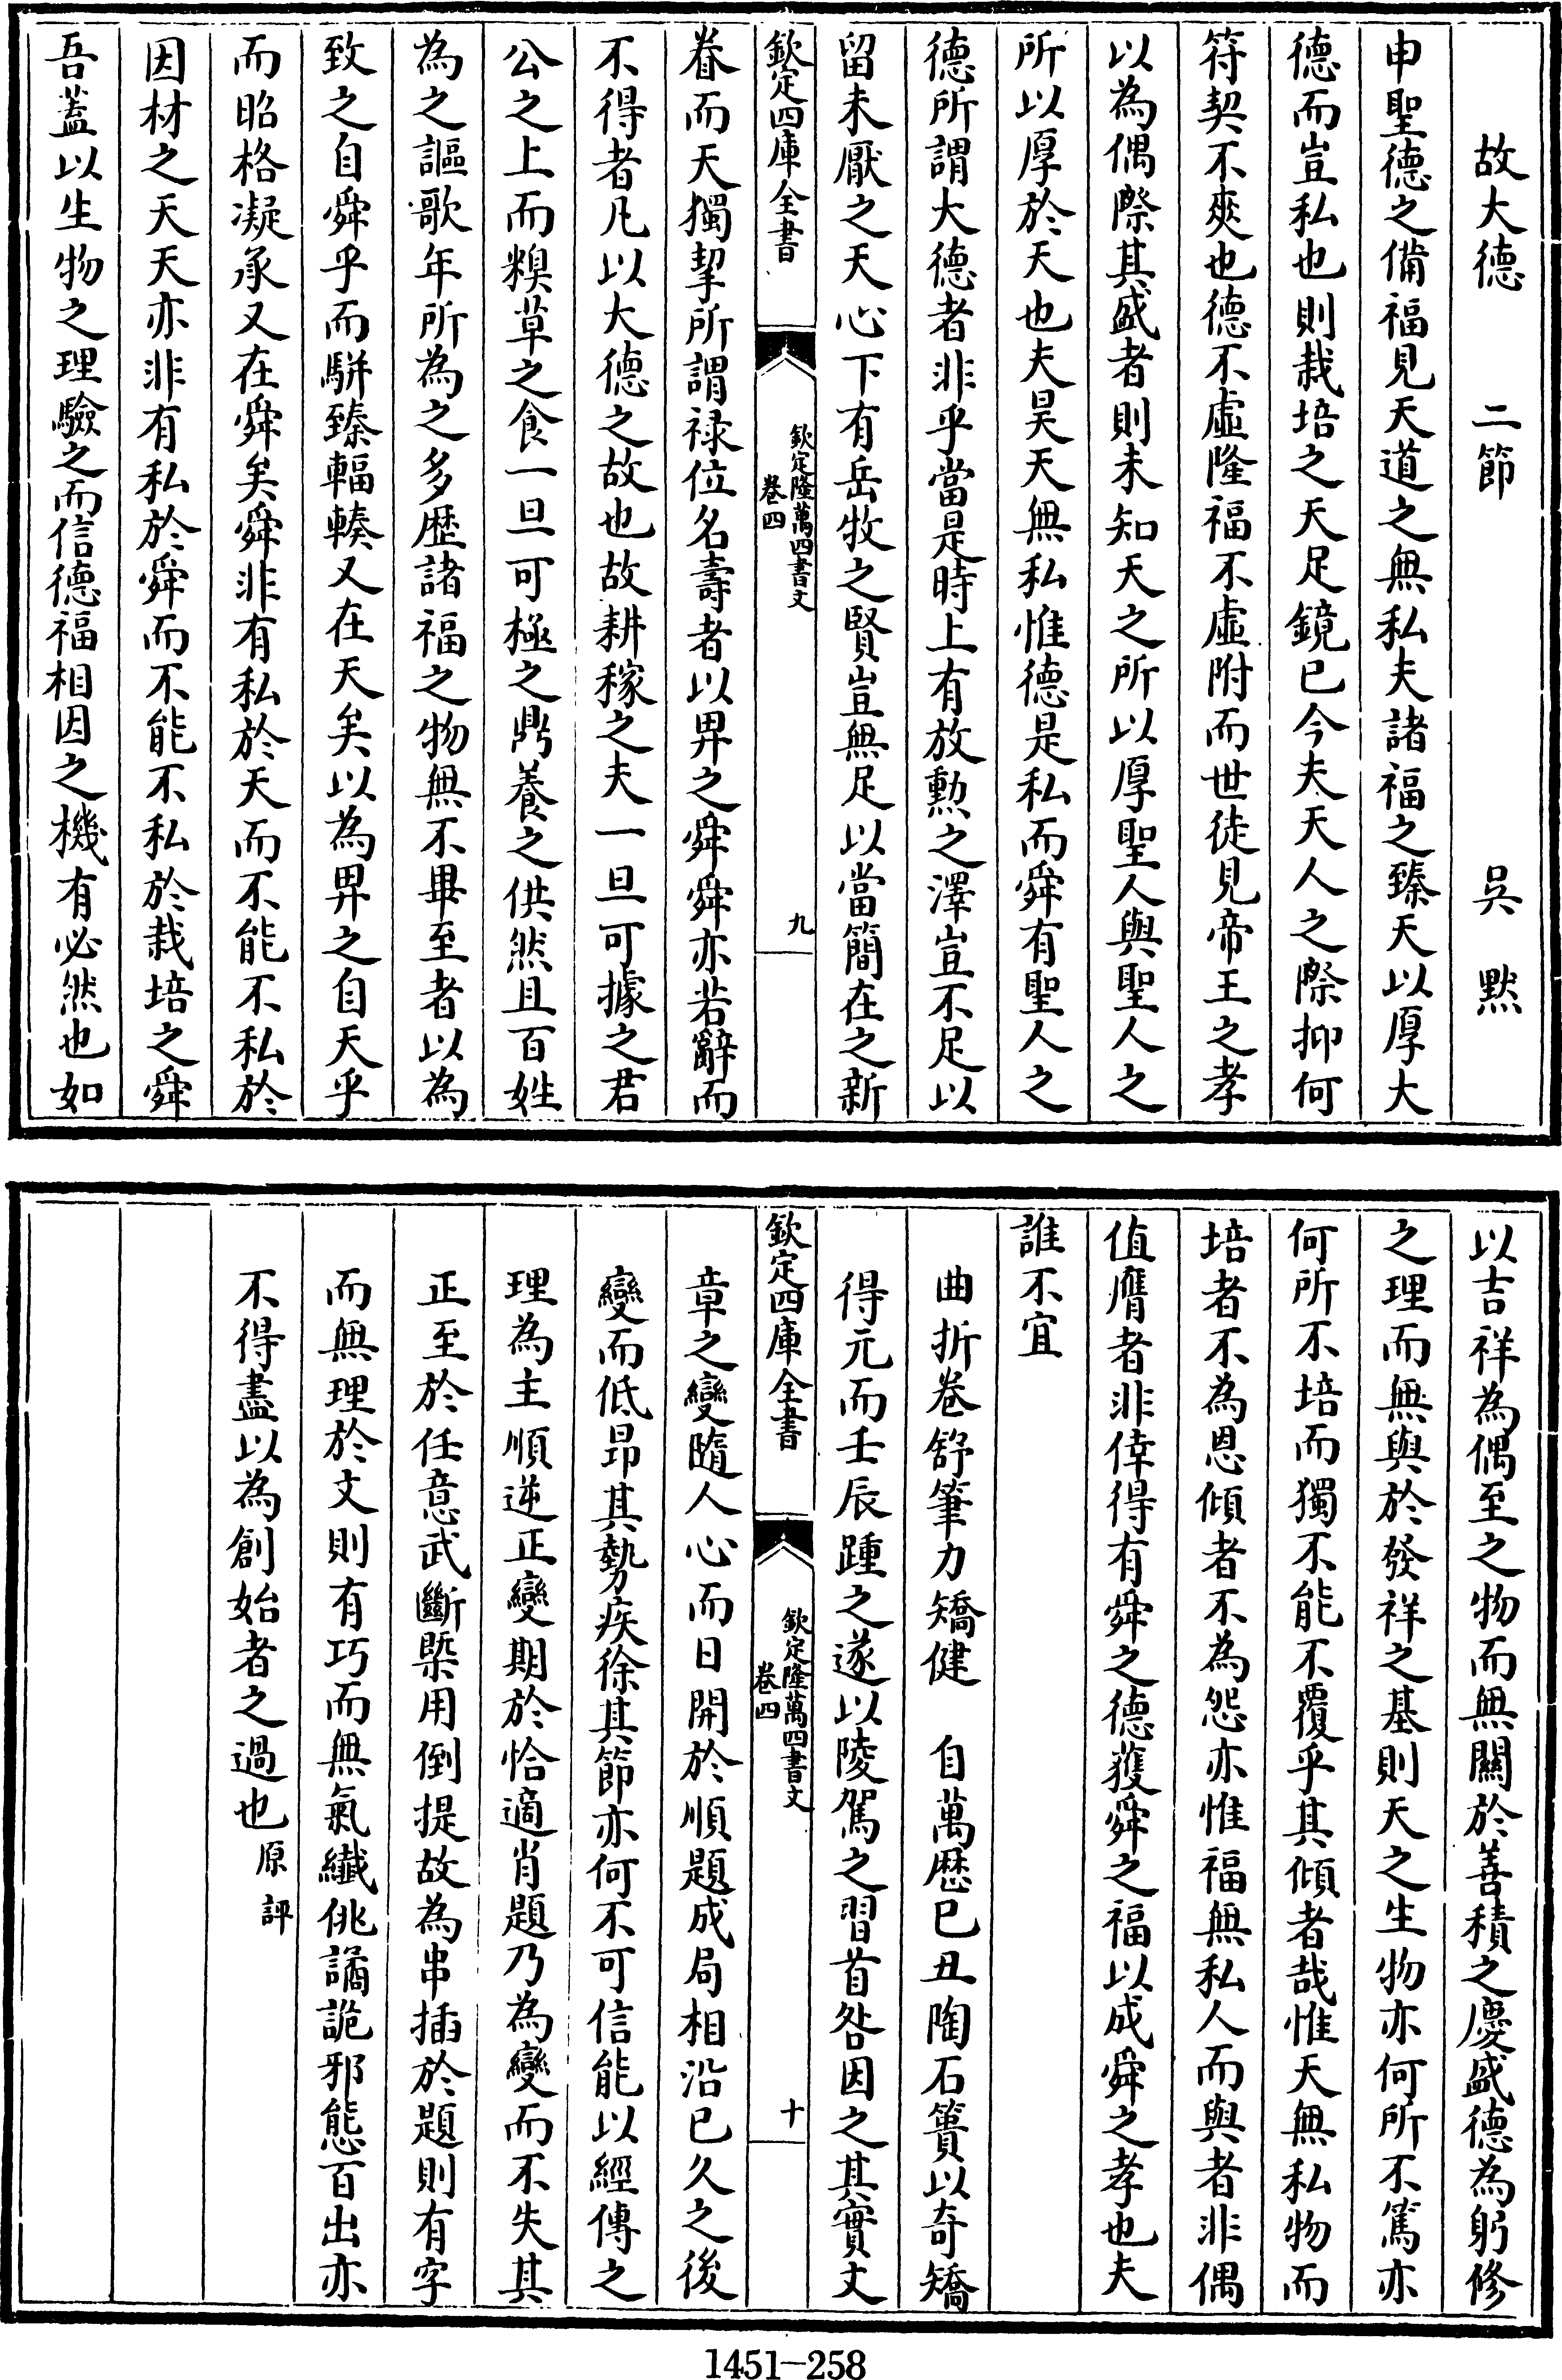 故大德　二節　吳　默
申聖德之備福見天道之無私夫諸福之臻天以厚大
德而豈私也則栽培之天足鏡已今夫天人之際抑何
符契不爽也德不虛隆福不虛附而世徒見帝王之孝
以為偶際其盛者則未知天之所以厚聖人與聖人之
所以厚於天也夫昊天無私惟德是私而舜有聖人之
德所謂大德者非乎當是時上有放勲之澤豈不足以
留未厭之天心下有岳牧之賢豈無足以當簡在之新
欽定四庫全書
欽定隆萬四書文
卷四
九
眷而天獨挈所謂祿位名壽者以畀之舜舜亦若辭而
不得者凡以大德之故也故耕稼之夫一旦可據之君
公之上而糗草之食一旦可極之鼎養之供然且百姓
為之謳歌年所為之多歷諸福之物無不畢至者以為
致之自舜乎而駢臻輻輳又在天矣以為畀之自天乎
而昭格凝承又在舜矣舜非有私於天而不能不私於
因材之天天亦非有私於舜而不能不私於栽培之舜
吾蓋以生物之理驗之而信德福相因之機有必然也如
以吉祥為偶至之物而無關於善積之慶盛德為躬修
之理而無與於發祥之基則天之生物亦何所不篤亦
何所不培而獨不能不覆乎其傾者哉惟天無私物而
培者不為恩傾者不為怨亦惟福無私人而與者非偶
值膺者非倖得有舜之德獲舜之福以成舜之孝也夫
誰不宜
曲折卷舒筆力矯健　自萬歷己丑陶石簣以奇矯
得元而壬辰踵之遂以陵駕之習首咎因之其實文
欽定四庫全書
欽定隆萬四書文
卷四
十
章之變隨人心而日開於順題成局相沿已久之後
變而低昂其勢疾徐其節亦何不可信能以經傳之
理為主順逆正變期於恰適肖題乃為變而不失其
正至於任意武斷槩用倒提故為串插於題則有字
而無理於文則有巧而無氣纖佻譎詭邪態百出亦
不得盡以為創始者之過也原評
1451—258